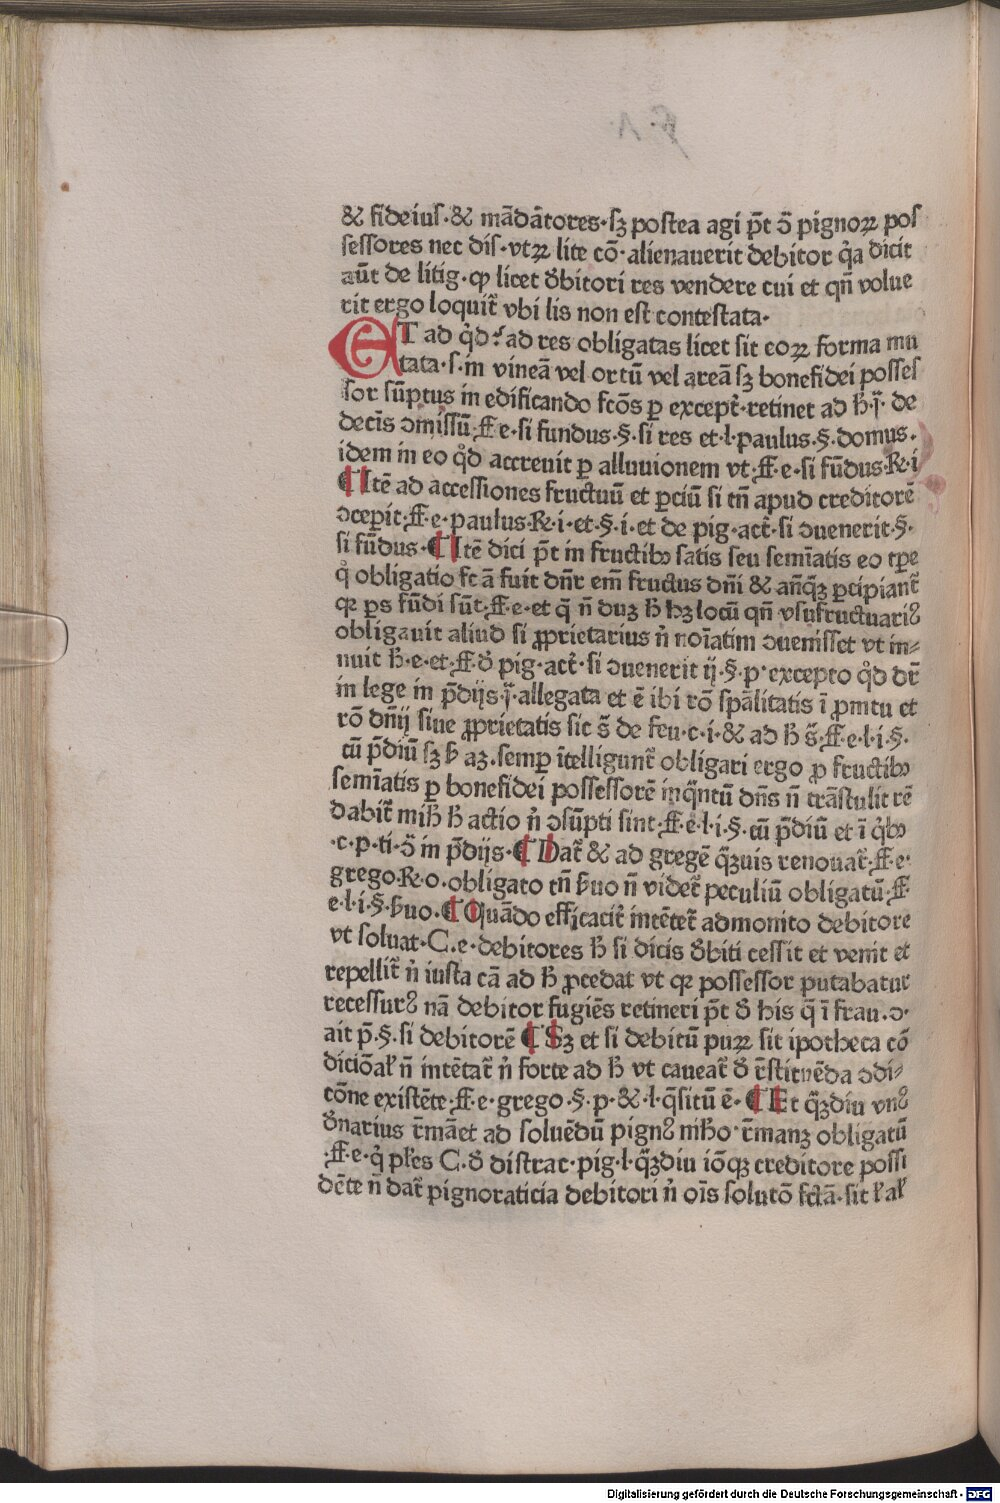 & fideiuſ·& mādātores·ſꝫ poſtea agi p̄t ↄ̄ pignoꝝ poſ
ſeſſores nec diſ·vtꝝ lite cō·alienauerit debitor q̇a dicit
aūt de litig·ꝙ licet d̄bitori res vendere cui et qn̄ volue
rit ergo loquit̄ vbi lis non eſt conteſtata·
ET ad q̇d·ad res obligatas licet ſit eoꝝ forma mu
tata·ſ·in vineā vel ortū vel areā ſꝫ bonefidei poſſeſ
ſor sūptus in edificando fcōs ꝑ except̄·retinet ad h̄·q̄·de
decīs ↄmiſſū·ff·e·ſi fundus·§·ſi res et·l·paulus·§·domus·
idem in eo q̇d accreuit ꝑ alluuionem vt·ff·e·ſi fūdus·R·i
¶ Itē ad acceſſiones fructuū et ꝑciū ſi tn̄ apud creditorē
ↄceꝑit·ff·e·paulus·R·i·et·§·i·et de pig·act̄·ſi ↄuenerit·§·
ſi fūdus·¶ Itē dici p̄t in fructibꝫ ſatis ſeu ſemīatis eo tꝑe
q̇ obligatio fc̄a fuit dn̄r em̄ fructus dn̄i & an̄q̄ꝫ ꝑcipiant̄
obligauit aliud ſi ꝓprietarius n̄ noīatim ↄueniſſet vt in⸗
nuit h̄·e·et·ff·d̄ pig·act̄·ſi ↄuenerit ij·§·p·excepto q̇d dr̄
in lege in p̄dijs·q̄·allegata et ē ibi rō ſpālitatis ī ꝓmtu et
rō dn̄ij ſiue ꝓprietatis ſic s̄ de feu·c·i·& ad h̄ s̄·ff·e·l·i·§·
cū p̄diū ſꝫ h̄ aꝫ·ſemꝑ ītelligunt̄ obligari ergo ꝓ fructibꝫ
ſemīatis ꝑ bonefidei poſſeſſorē inq̄ntū dn̄s n̄ trāſtulit rē
dabit̄ mih̄ h̄ actio n̄ ↄsūpti ſint·ff·e·l·i·§·cū p̄diū et ī q̇bꝫ
·c·p·ti·ↄ̄ in p̄dijs·¶ Dat̄ & ad gregē q̄ꝫuis renouat̄·ff·e·
grego·R·o·obligato tn̄ ſ̄uo n̄ videt̄ peculiū obligatū·ff·
e·l·i·§·ſ̄uo·¶ Quādo efficacit̄ intētet̄ admonito debitore
vt ſoluat·C·e·debitores h̄ ſi dicis d̄biti ceſſit et venit et
repellit̄ n̄ iuſta cā ad h̄ ꝓcedat vt qꝛ poſſeſſor putabatur
receſſurꝰ nā debitor fugiēs retineri p̄t d̄ his q̄ ī frau·ↄ·
ait p̄·§·ſi debitorē ¶ Sꝫ et ſi debitū puꝝ ſit ipotheca cō
diciōal̄ n̄ intētat̄ n̄ forte ad h̄ vt caueat̄ d̄ r̄ſtituēda ↄdi⸗
tōne exiſtēte·ff·e·grego·§·p·&·l·q̄ſitū ē·¶ Et q̄ꝫdiu vnꝰ
d̄narius r̄māet ad ſoluēdū pignꝰ nih̄o·r̄manꝫ obligatū
·ff·e·q̇ pl̄es C·d̄ diſtrac·pig·l·q̄ꝫdiu iōqꝫ creditore poſſi
dēte n̄ dat̄ pignoraticia debitori n̄ oīs ſolutō fctā·ſit l̄ al̄